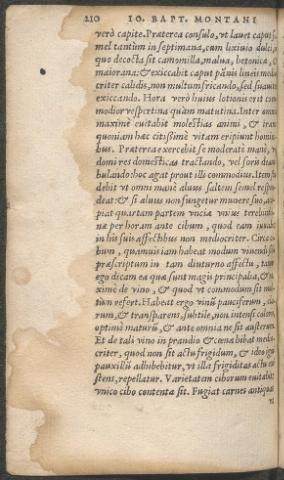 210 IO. BAPT. MONTANI
verò capite. Præterea consulo, vt lauet caput se
mel tantùm in septimana, cum lixiuio dulci,
quo decocta sit camomilla, malua, betonica, &
maiorana: & exiccabit caput pãnis lineis medio
criter calidis, non multum fricando, sed suauiter
exiccando. Hora verò huius lotionis erit com
modior vespertina quàm matutina. Inter omnia
maximè euitabit molestias animi, &
quoniam hæc citissimè vitam eripiunt homini
bus. Præterea exercebit se moderatè manè,
domi res domesticas tractando, vel foris
bulando: hoc agat prout illi commodius. Item
debit vt omni manè aluus saltem semel respon
deat: & si aluus non fungetur munere suo,
piat quartam partem vnciæ vnius terebinti
næ per horam ante cibum, quod eam iuuabit
in his suis affectibus non mediocriter. Circa ci
bum, quamuis iam habeat modum viuendi
præscriptum in tam diuturno affectu, tamen
ego dicam ea quæ sunt magis principalia, & ma
ximè de vino, & quod vt commodum sit mul
tùm refert. Habeat ergo vinũ pauciferum,
rum, & transparens, subtile, non intensè coloris,
optimè maturũ, & ante omnia ne sit austerum.
Et de tali vino in prandio & cœna bibat medio
criter, quod non sit actu frigidum, & ideo ignis
pauxillũ adhibebitur, vt illa frigiditas actu exi
stens, repellatur. Varietatem ciborum euitabit:
vnico cibo contenta sit. Fugiat carnes antiquas